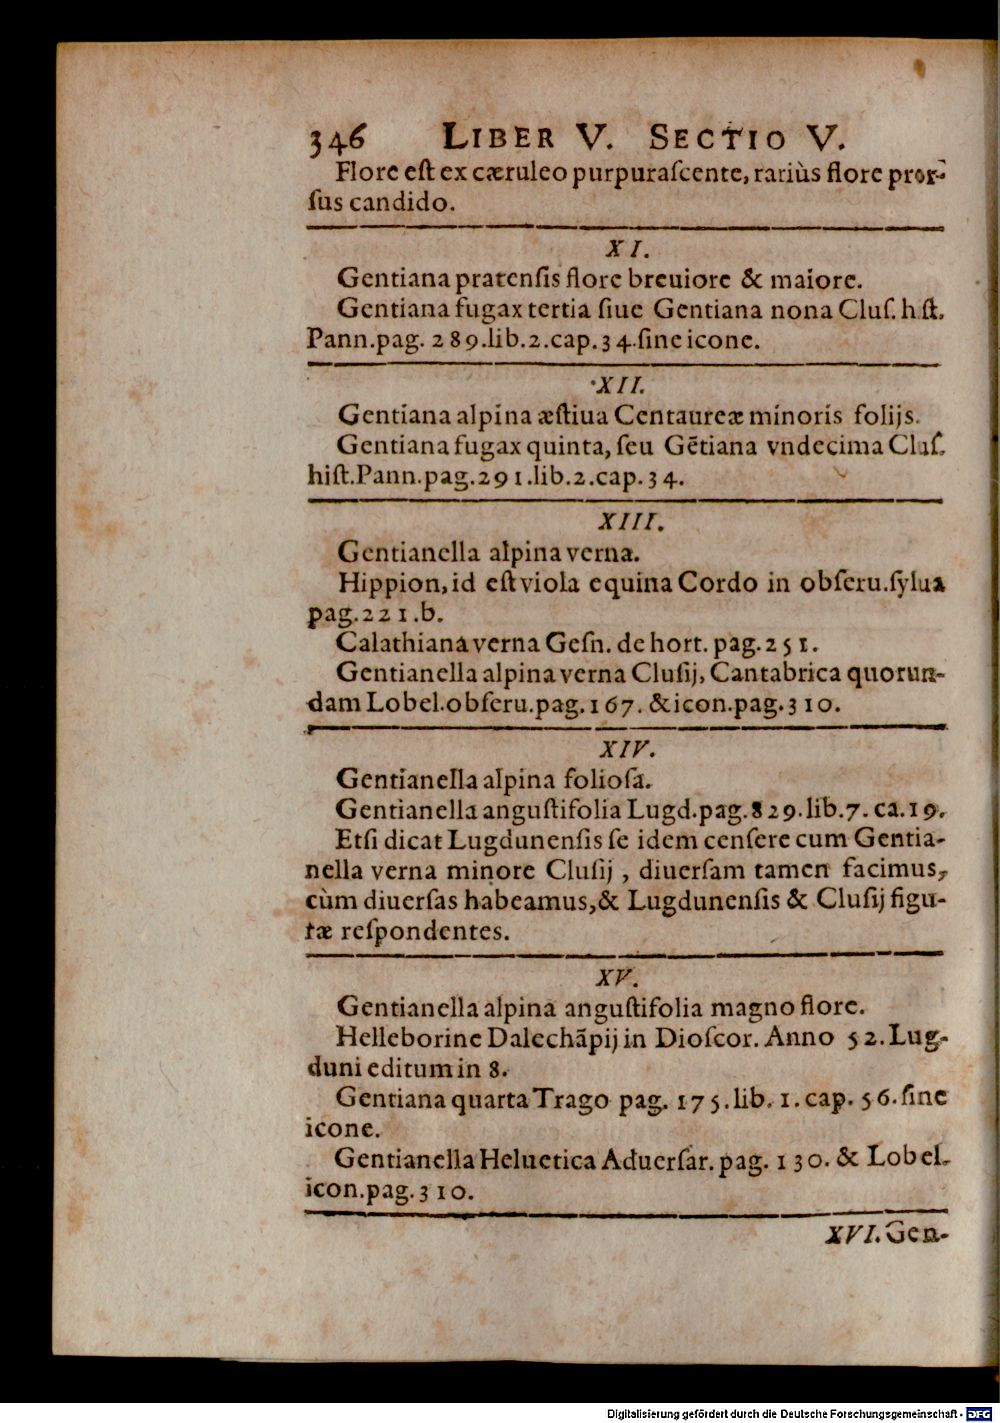 346 LIBER V. SECTIO V.
Flore eſt ex cæruleo purpuraſcente, rariùs flore pror-
ſus candido.
XI.
Gentiana pratenſis flore breuiore & maiore.
Gentiana fugax tertia ſiue Gentiana nona Cluſ. hiſt.
Pann.pag. 289.lib.2.cap.34.ſine icone.
XII.
Gentiana alpina æſtiua Centaureæ minoris folijs.
Gentiana fugax quinta, ſeu Gẽtiana vndecima Cluſ.
hiſt.Pann.pag.291.lib.2.cap.34.
XIII.
Gentianella alpina verna.
Hippion, id eſt viola equina Cordo in obſeru.ſylua
pag.221.b.
Calathiana verna Geſn. de hort. pag.251.
Gentianella alpina verna Cluſij, Cantabrica quorun-
dam Lobel.obſeru.pag.167. & icon.pag.310.
XIV.
Gentianella alpina folioſa.
Gentianella anguſtifolia Lugd.pag.829.lib.7. ca.19.
Etſi dicat Lugdunenſis ſe idem cenſere cum Gentia-
nella verna minore Cluſij , diuerſam tamen facimus,
cùm diuerſas habeamus,& Lugdunenſis & Cluſij figu-
ræ reſpondentes.
XV.
Gentianella alpina anguſtifolia magno flore.
Helleborine Dalechãpij in Dioſcor. Anno 52.Lug-
duni editum in 8.
Gentiana quarta Trago pag. 175.lib. 1. cap. 56.ſine
icone.
Gentianella Heluetica Aduerſar. pag. 130. & Lobel.
icon.pag.310.
XVI.Gen-
Digitalisierung gefördert durch die Deutsche Forschungsgemeinschaft - DFG